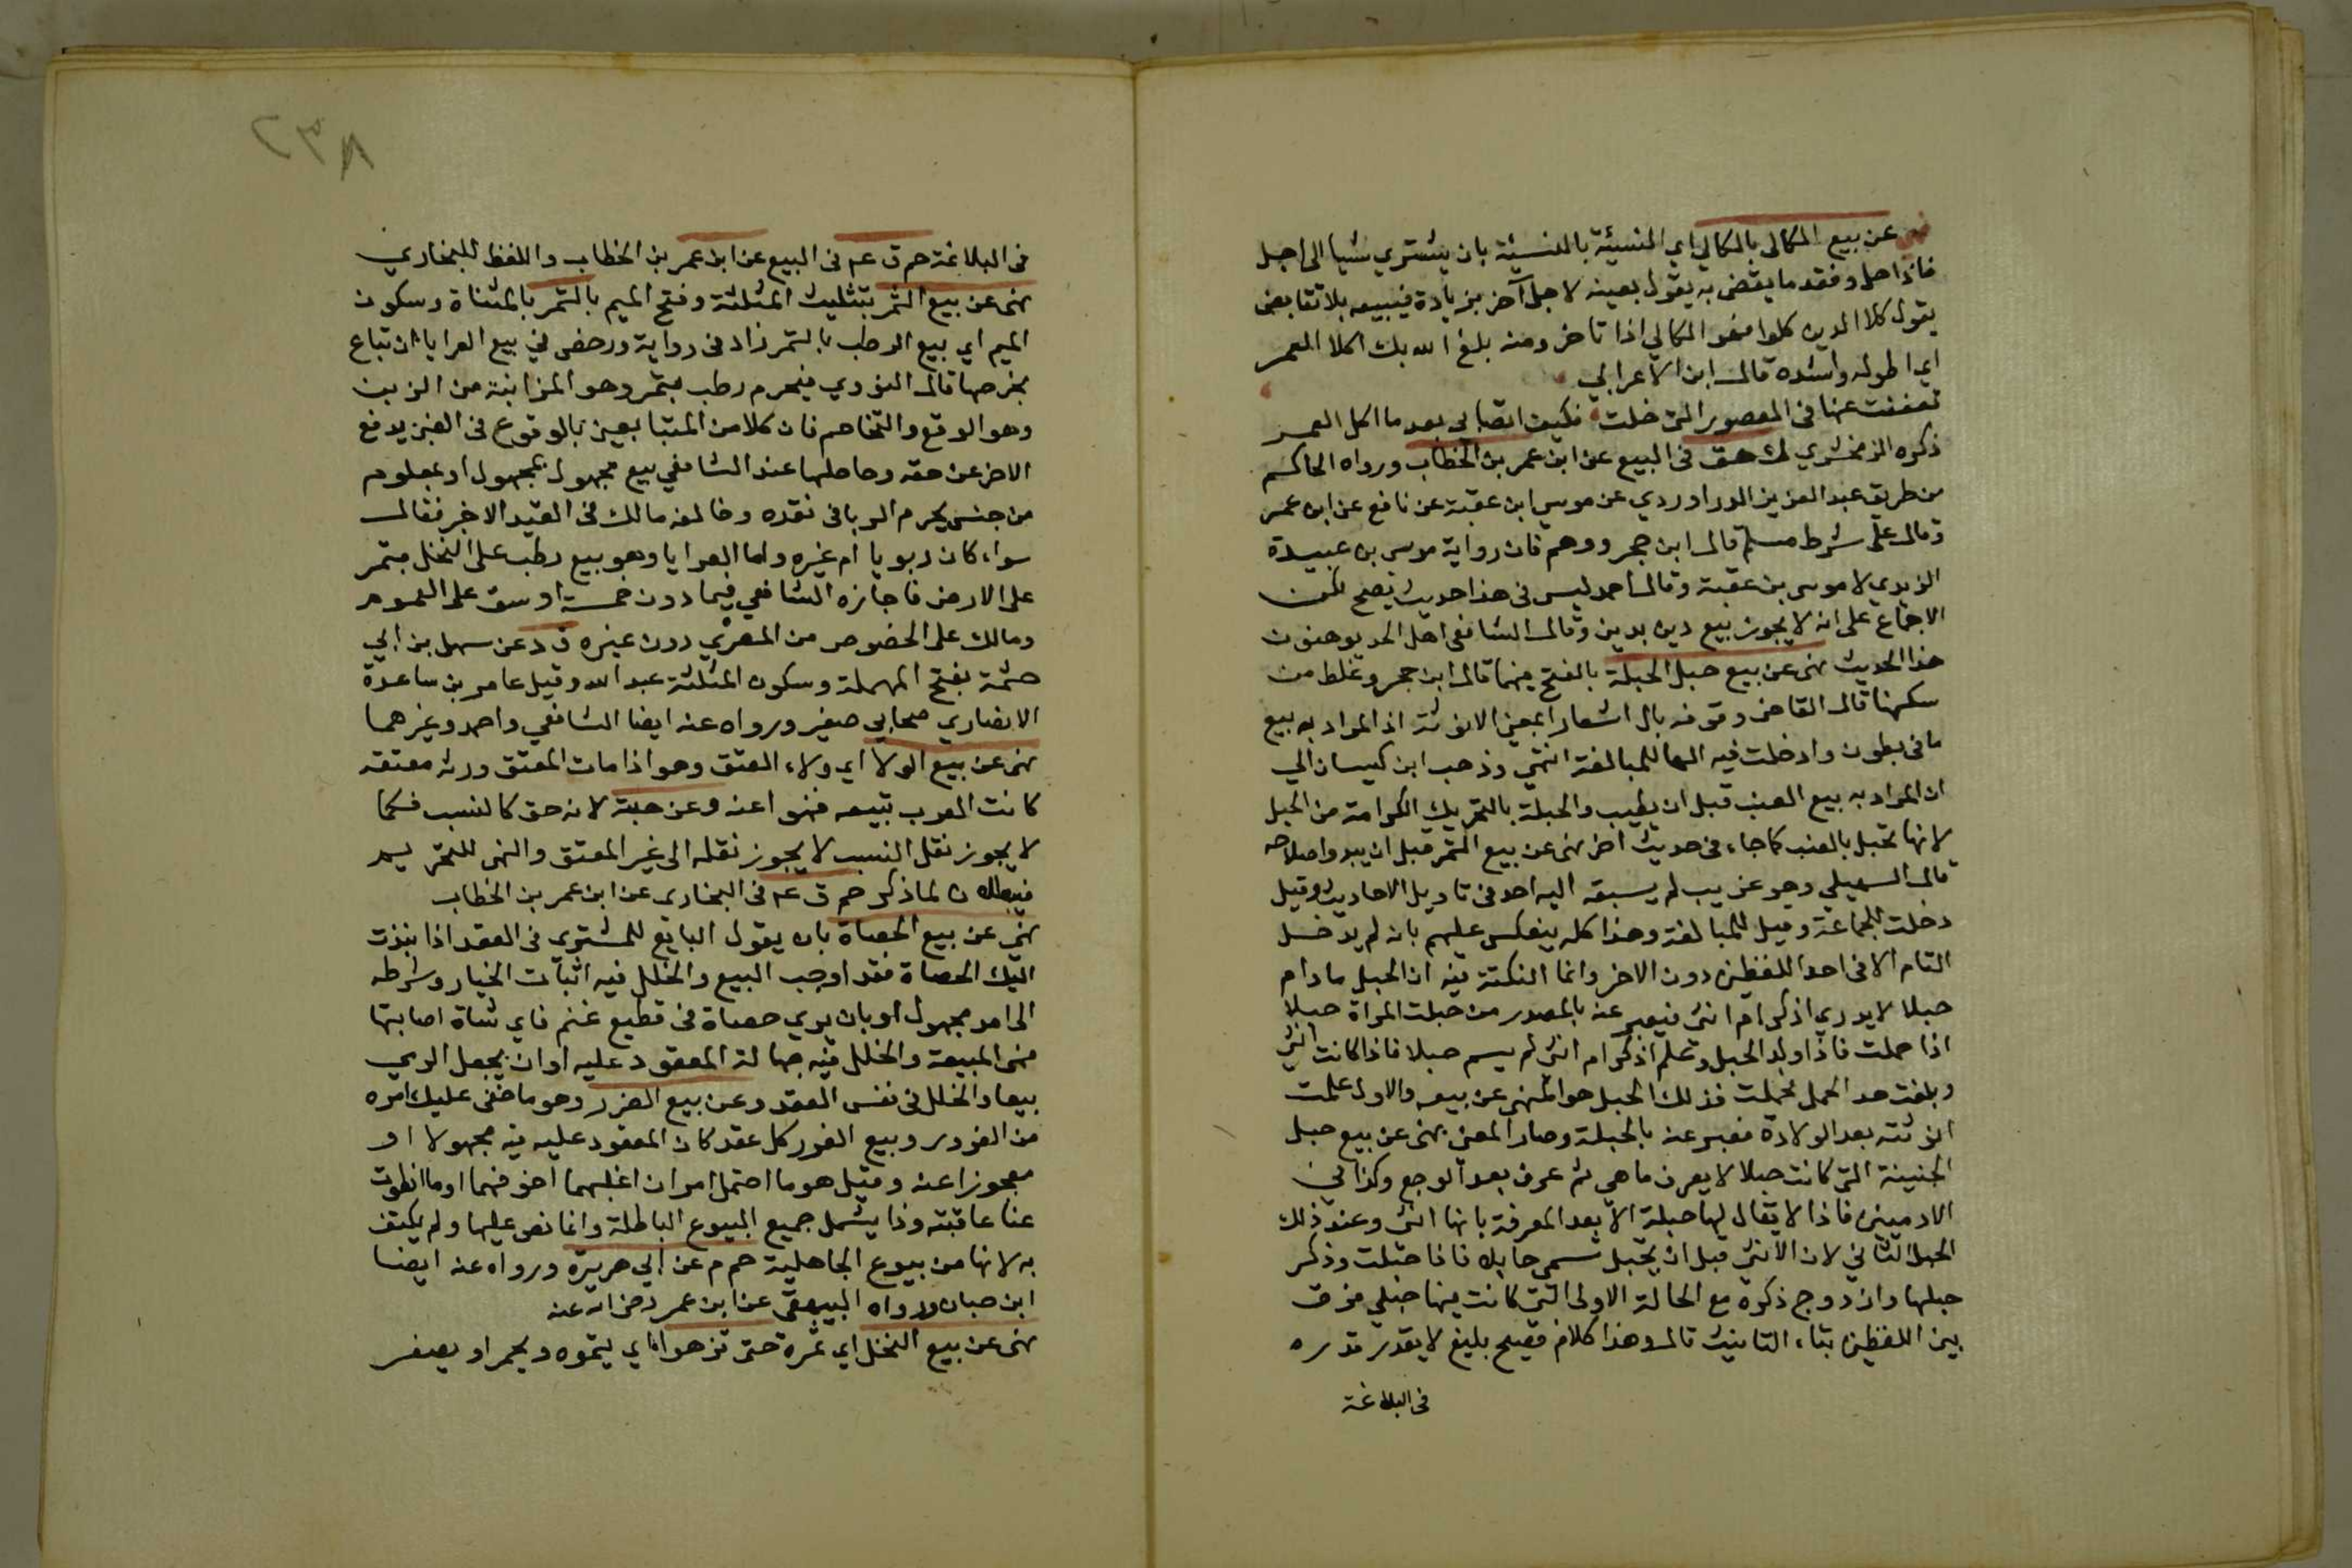 نهى عن بيع الكالى بالكالي اي النسيئة بالنسيئة بان يشتري شيا الى اجل
فاذا حل وفقد ما يقضى به يقول بعينه لاجل آخر بزيادة فيبيعه بلا تقابض
يقول كلا الدين كلوا فهو الكالي اذا تاخر ومنه بلغ الله بك اكلا العمر
اي اطوله واشده قال ابن الاعرابي
تعففت عنها فى العصور التى خلت فكيف التصابى بعد ما اكلا العمر
ذكره الزمخشري ك هق فى البيع عن ابن عمر بن الخطاب ورواه الحاكم
من طريق عبد العزيز الدراوردي عن موسى ابن عقبة عن نافع عن ابن عمر
وقال على شرط مسلم قال ابن حجر ووهم فان رواية موسى بن عبيدة
الزبدي لا موسى بن عقبة وقال احمد ليس فى هذا حديث يصح لكن
الاجماع على انه لا يجوز بيع دين بدين وقال الشافعى اهل الحد يوهنون
هذا الحديث نهى عن بيع حبل الحبلة بالفتح فيهما قال ابن حجر وغلط من
سكنها قال القاضى وقرنه بال اشعارا بمعنى الانوثة اذ المراد به بيع
ما فى بطون وادخلت فيه الها للمبالغة انتهي وذهب ابن كيسان الي
ان المراد به بيع العنب قبل ان يطيب والحبلة بالتحريك الكرامة من الحبل
لانها تحبل بالعنب كما جاء فى حديث اخر نهى عن بيع الثمر قبل ان يبدو اصلاحه
قال السهيلي وهو غريب لم يسبقه اليه احد فى تاويل الاحاديث وقيل
دخلت للجماعة وقيل للمبالغة وهذا كله ينعكس عليهم بانه لم يدخل
التاء الا فى احد اللفظين دون الاخر وانما النكتة فيه ان الحبل ما دام
حبلا لا يدري اذكر ام انثى فيعبر عنه بالمصدر من حبلت المراة حبلا
اذا حملت فاذا ولد الحبل وعلم اذكر ام انثى لم يسم حبلا فاذا كانت انثى
وبلغت حد الحمل فحملت فذلك الحبل هو المنهى عن بيعه والاول علمت
انوثته بعد الولادة فعبر عنه بالحبلة وصار المعنى نهى عن بيع حبل
الجنينة التى كانت حبلا لا يعرف ما هى ثم عرف بعد الوجع وكذا في
الادميين فاذا لا يقال لها حبلة الا بعد المعرفة بانها انثى وعند ذلك
الحبل الثاني لان الانثى قبل ان تحبل تسمى حايل فاذا حبلت وذكر
حبلها وازدوج ذكره مع الحالة الاولى التى كانت فيها حبلي فرق
بين اللفظين بتاء التانيث قال وهذا كلام فصيح بليغ لا يقدر قدره
فى البلاغة
٢٣٨
فى البلاغة حم ق عه فى البيع عن ابن عمر بن الخطاب واللفظ للبخاري
نهى عن بيع الثمر بتثليث المثلثة وفتح الميم بالتمر بالمثناة وسكون
الميم اي بيع الرطب بالتمر زاد فى رواية ورخص في بيع العرايا ان تباع
بخرصها قال النووي فيحرم رطب بتمر وهو المزابنة من الزبن
وهو الدفع والتخاصم فان كلا من المتبايعين بالوقوع فى الغبن يدفع
الاخر عن حقه وحاصلها عند الشافعي بيع مجهول بمجهول او بمعلوم
من جنس يحرم الربا فى نقده وخالفه مالك فى القيد الاخر فقال
سواء كان ربويا ام غيره واما العرايا وهو بيع رطب على النخل بتمر
على الارض فاجازه الشافعي فيما دون خمسة اوسق على العموم
ومالك على الخصوص من المعري دون غيره ق د عن سهل بن ابي
حثمة بفتح المهملة وسكون المثلثة عبد الله وقيل عامر بن ساعدة
الانصاري صحابي صغير ورواه عنه ايضا الشافعي واحمد وغيرهما
نهى عن بيع الولا اي ولاء العتق وهو اذا مات المعتق ورثه معتقه
كانت العرب تبيعه فنهوا عنه وعن هبته لانه حق كالنسب فكما
لا يجوز نقل النسب لا يجوز نقله الى غير المعتق والنهى للتحريم
فيبطلان لما ذكر حم ق عه فى البخارى عن ابن عمر بن الخطاب
نهى عن بيع الحصاة بان يقول البايع للمشتري فى العقد اذا نبذت
اليك الحصاة فقد اوجب البيع والخلل فيه اثبات الخيار وشرطه
الى امد مجهول او بان يرمي حصاة فى قطيع غنم فاي شاة اصابتها
فهى المبيعة والخلل فيه جهالة المعقود عليه او ان يجعل الرمي
بيعا والخلل فى نفس العقد وعن بيع الغرر وهو ما خفى عليك امره
من الغرور وبيع الغرر كل عقد كان المعقود عليه فيه مجهولا او
معجوزا عنه وقيل هو ما احتمل امران اغلبهما اخوفهما او ما انطوت
عنا عاقبته وذا يشمل جميع البيوع الباطلة وانما نص عليها ولم يكتف
به لانها من بيوع الجاهلية حم م عن ابي هريرة ورواه عنه ايضا
ابن حبان ورواه البيهقى عن ابن عمر رضى الله عنه
نهى عن بيع النخل اي ثمره حتى تزهوا اي يتموه ويحمر او يصفر